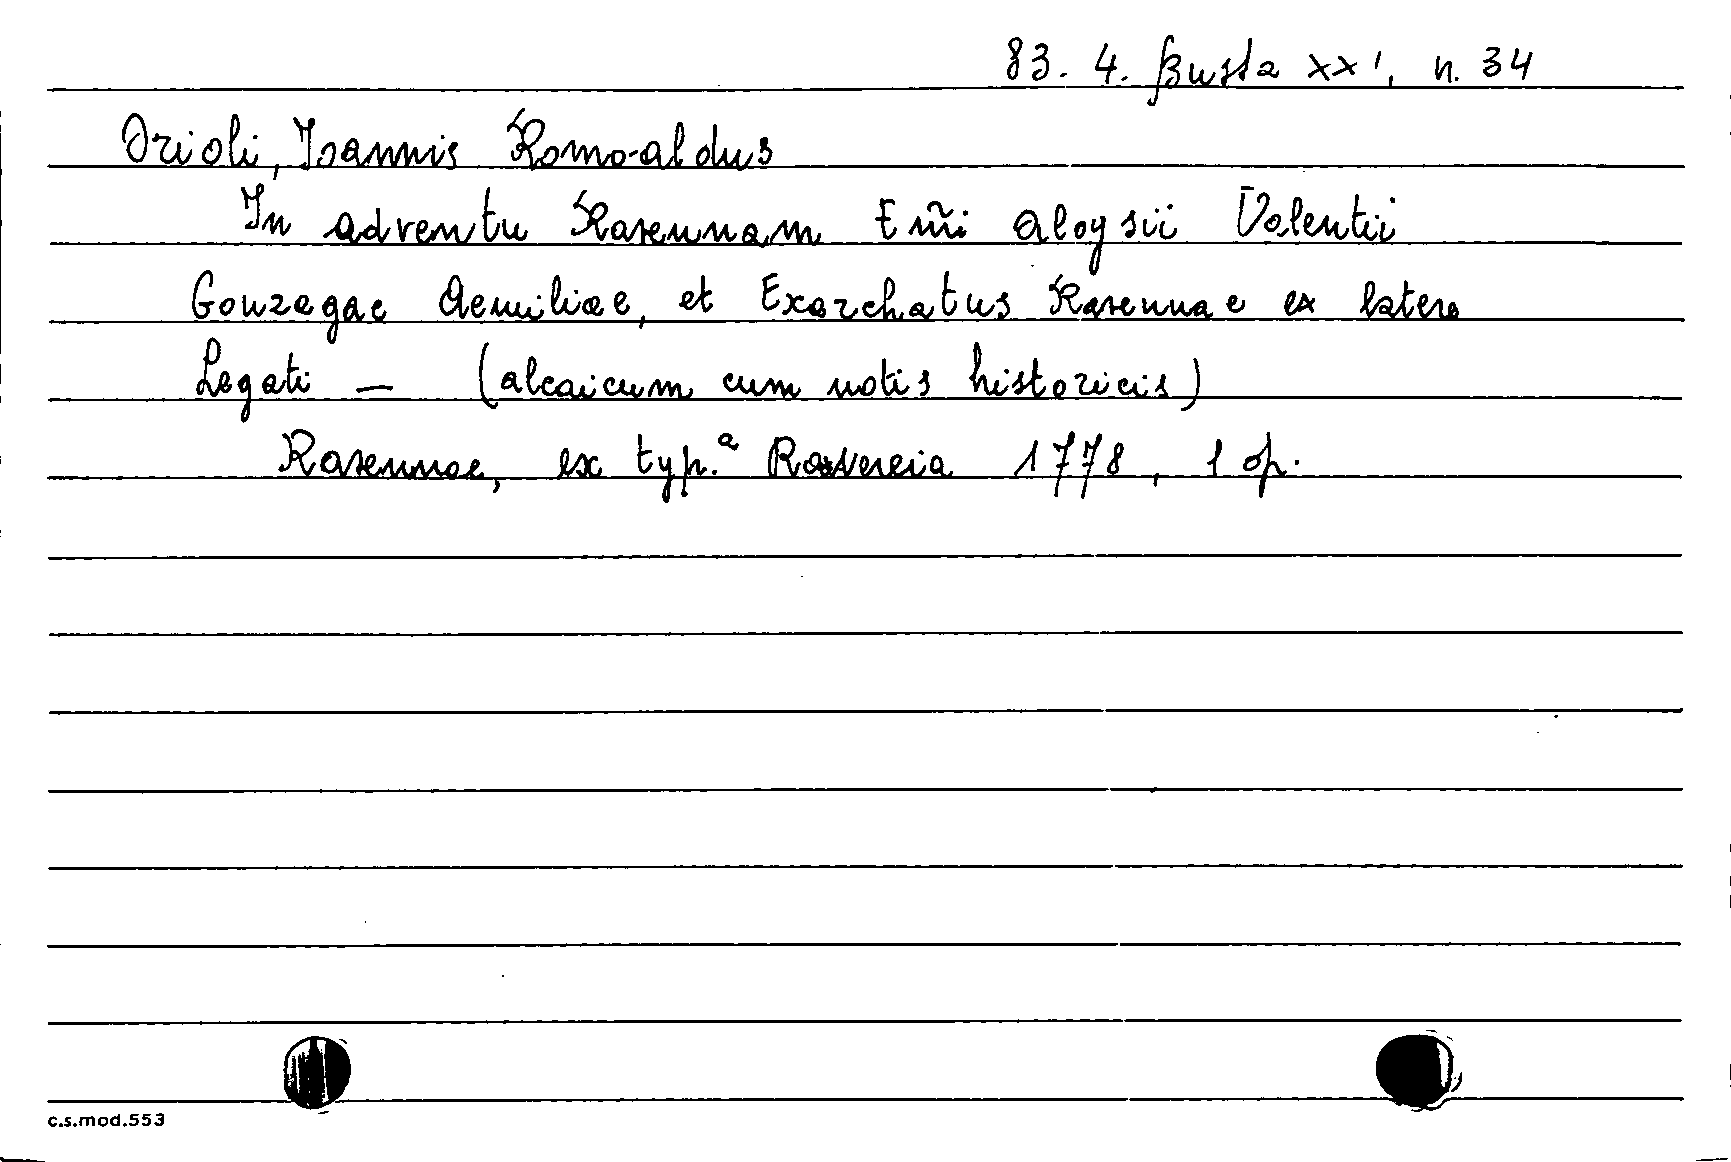 83. 4. Busta XX¹, n. 34
Orioli, Ioannis Romo-aldus
In adventu Ravennam Emĩ Aloysii Valentii
Gonzagae Aemiliae, et Exarchatus Ravennae ex latere
Legati — (alcaicum cum notis historicis)
Ravennae, ex typ.ª Rovereia 1778, 1 op.
c.s.mod.553